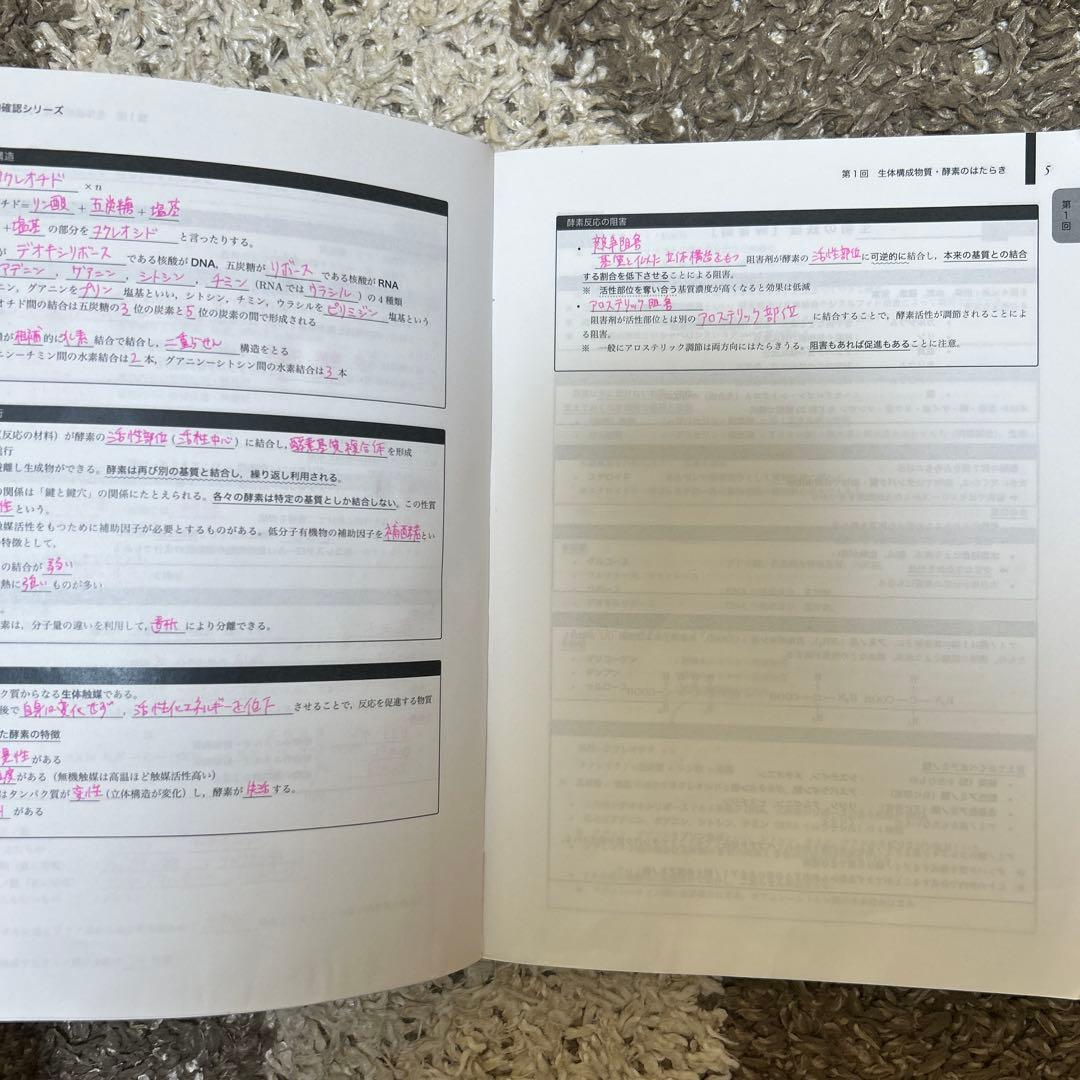 確認シリーズ
造
クレオチド ×n
チド=リン酸 + 五炭糖 + 塩基
+塩基 の部分をヌクレオシド と言ったりする。
が デオキシリボース である核酸が DNA，五炭糖が リボース である核酸が RNA
アデニン，グアニン，シトシン，チミン（RNA では ウラシル）の 4 種類
ニン，グアニンをプリン 塩基といい，シトシン，チミン，ウラシルを ピリミジン 塩基という
オチド間の結合は五炭糖の3 位の炭素と5 位の炭素の間で形成される
が相補的に水素 結合で結合し，二重らせん 構造をとる
ニン－チミン間の水素結合は2 本，グアニン－シトシン間の水素結合は3 本
行
反応の材料）が酵素の活性部位（活性中心）に結合し，酵素基質複合体を形成
行
離し生成物ができる。酵素は再び別の基質と結合し，繰り返し利用される。
の関係は「鍵と鍵穴」の関係にたとえられる。各々の酵素は特定の基質としか結合しない。この性質
性という。
触媒活性をもつために補助因子が必要とするものがある。低分子有機物の補助因子を補酵素とい
特徴として，
の結合が弱い
熱に強いものが多い
。
素は，分子量の違いを利用して，透析により分離できる。
ク質からなる生体触媒である。
後で自身は変化せず，活性化エネルギーを低下 させることで，反応を促進する物質
た酵素の特徴
異性がある
度がある（無機触媒は高温ほど触媒活性高い）
はタンパク質が変性（立体構造が変化）し，酵素が失活する。
H がある
第 1 回　生体構成物質・酵素のはたらき
5
第1回
酵素反応の阻害
・ 競争阻害
基質と似た立体構造をもつ 阻害剤が酵素の活性部位に可逆的に結合し，本来の基質との結合
する割合を低下させることによる阻害。
※　活性部位を奪い合う基質濃度が高くなると効果は低減
・ アロステリック阻害
阻害剤が活性部位とは別のアロステリック部位 に結合することで，酵素活性が調節されることによ
る阻害。
※　一般にアロステリック調節は両方向にはたらきうる。阻害もあれば促進もあることに注意。